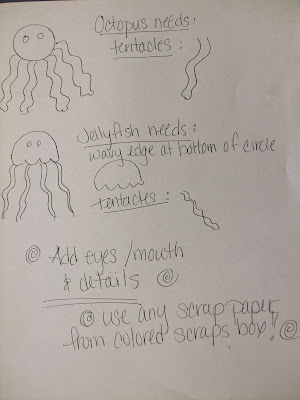 Octopus needs:
tentacles:
Jellyfish needs:
wavy edge at bottom of circle
tentacles:
Add eyes/mouth
& details
use any scrap paper
from colored scraps box!